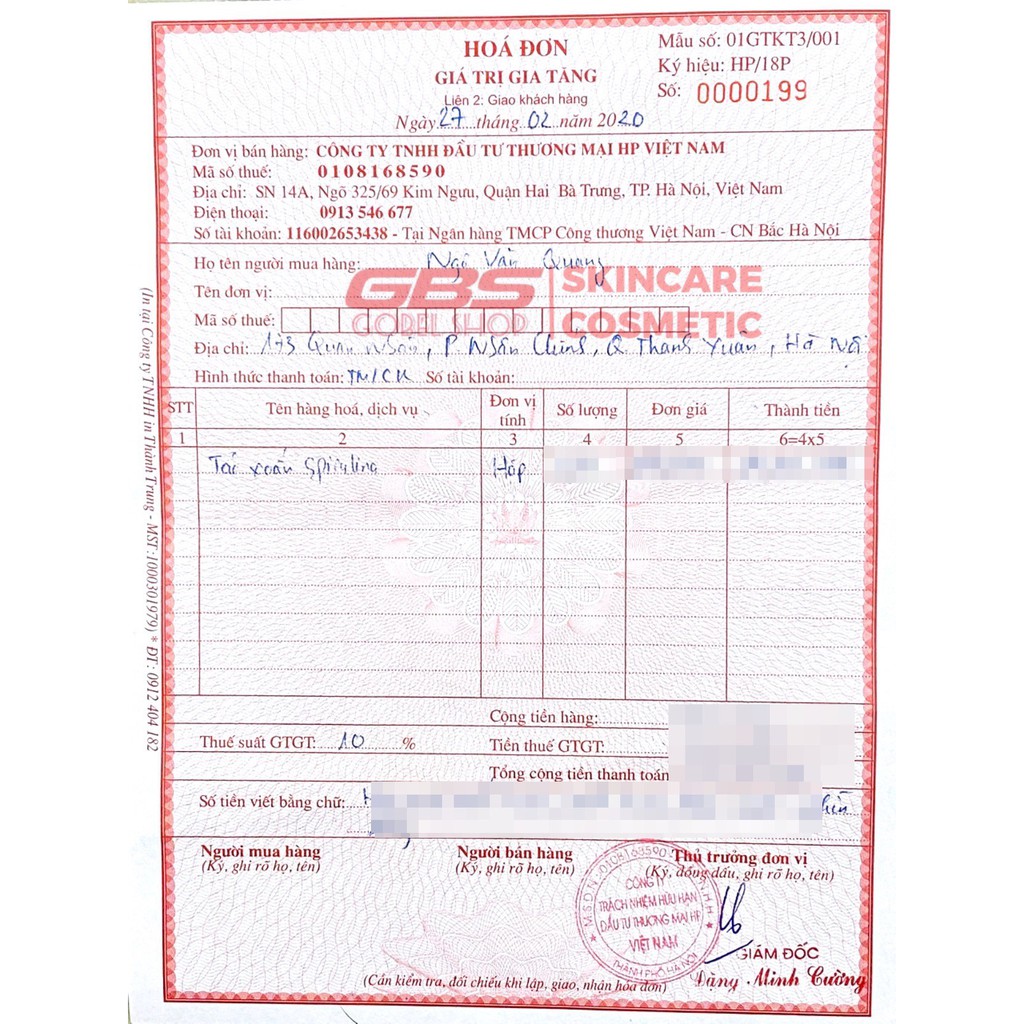 HOÁ ĐƠN
GIÁ TRỊ GIA TĂNG
Liên 2: Giao khách hàng
Ngày 27 tháng 02 năm 2020
Mẫu số: 01GTKT3/001
Ký hiệu: HP/18P
Số: 0000199
Đơn vị bán hàng: CÔNG TY TNHH ĐẦU TƯ THƯƠNG MẠI HP VIỆT NAM
Mã số thuế: 0108168590
Địa chỉ: SN 14A, Ngõ 325/69 Kim Ngưu, Quận Hai Bà Trưng, TP. Hà Nội, Việt Nam
Điện thoại: 0913 546 677
Số tài khoản: 116002653438 - Tại Ngân hàng TMCP Công thương Việt Nam - CN Bắc Hà Nội
Họ tên người mua hàng: Ngô Văn Quang
Tên đơn vị:
GBS SKINCARE
Mã số thuế:
GOBEL SHOP COSMETIC
Địa chỉ: 173 Quan Nhân, P. Nhân Chính, Q. Thanh Xuân, Hà Nội
Hình thức thanh toán: TM/CK Số tài khoản:
STT Tên hàng hoá, dịch vụ Đơn vị tính Số lượng Đơn giá Thành tiền
1 2 3 4 5 6=4x5
Tảo xoắn Spirulina Hộp
Cộng tiền hàng:
Thuế suất GTGT: 10 % Tiền thuế GTGT:
Tổng cộng tiền thanh toán
Số tiền viết bằng chữ:
Người mua hàng Người bán hàng Thủ trưởng đơn vị
(Ký, ghi rõ họ, tên) (Ký, ghi rõ họ, tên) (Ký, đóng dấu, ghi rõ họ, tên)
M.S.D.N: 0108168590
CÔNG TY
TRÁCH NHIỆM HỮU HẠN
ĐẦU TƯ THƯƠNG MẠI HP
VIỆT NAM
THÀNH PHỐ HÀ NỘI
GIÁM ĐỐC
Đặng Minh Cường
(Cần kiểm tra, đối chiếu khi lập, giao, nhận hoá đơn)
(In tại Công ty TNHH in Thành Trung - MST: 1000301979) * ĐT: 0912 404 182